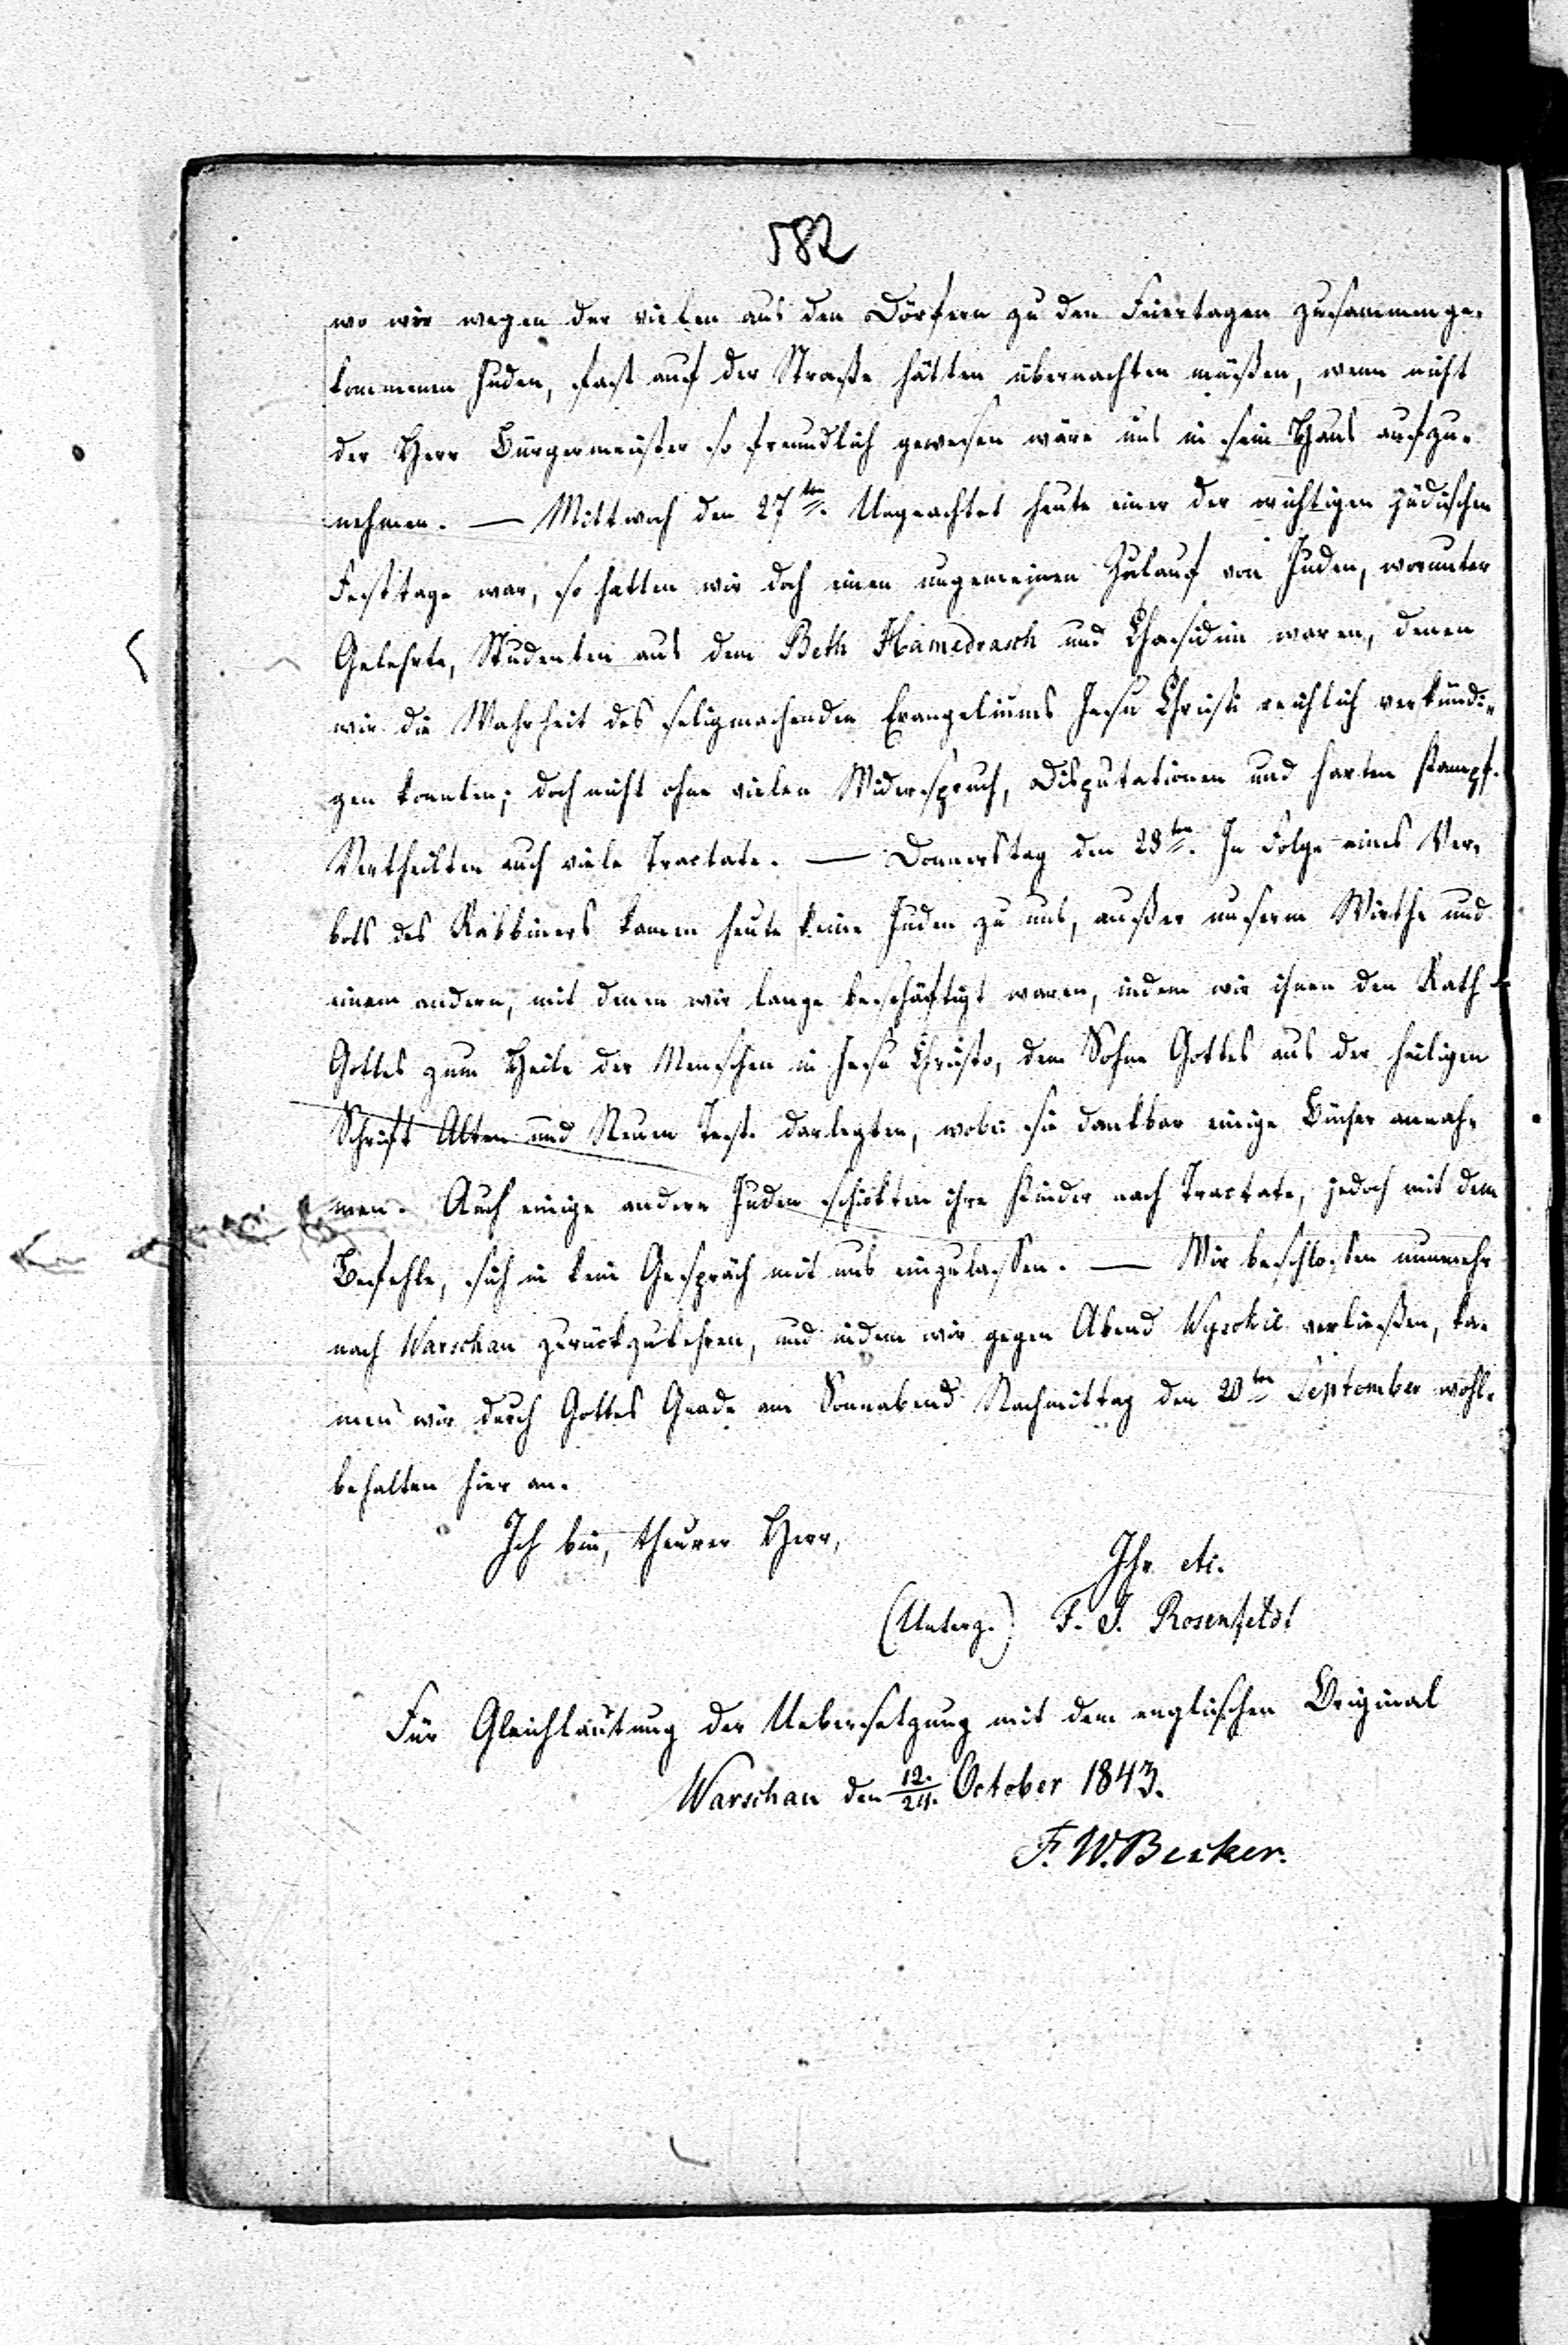 582
wo wir wegen der vielen aus den Dörfern zu den Feiertagen zusammenge-
kommenen Juden, fast auf der Straße hätten übernachten müßen, wenn nicht
der Herr Bürgermeister so freundlich gewesen wäre uns in sein Haus aufzu-
nehmen. — Mittwoch den 27ten. Ungeachtet heute einer der wichtigen jüdischen
Festtage war, so hatten wir doch einen ungemeinen Zulauf von Juden, worunter
Gelehrte, Studenten aus dem Beth Hamedrasch und Chasidim waren, denen
wir die Wahrheit des seligmachenden Evangeliums Jesu Christi reichlich verkündi-
gen konnten; doch nicht ohne vielen Widerspruch, Disputationen und harten Kampf.
Vertheilten auch viele Tractate. — Donnerstag den 28ten. In Folge eines Ver-
bots des Rabbiners kamen heute keine Juden zu uns, außer unserem Wirthe und
einem andern, mit denen wir lange beschäftigt waren, indem wir ihnen den Rath
Gottes zum Heile der Menschen in Jesu Christo, dem Sohne Gottes aus der heiligen
Schrift Alten und Neuen Test. darlegten, wobei sie dankbar einige Bücher annah-
men. Auch einige andere Juden schickten ihre Kinder nach Tractate, jedoch mit dem
Befehle, sich in kein Gespräch mit uns einzulassen. — Wir beschlossen nunmehr
nach Warschau zurückzukehren, und indem wir gegen Abend Wysokie verließen, ka-
men wir durch Gottes Gnade am Sonnabend Nachmittag den September wohl-
behalten hier an.
Ich bin, theurer Herr,
Ihr etc.
(Unterz.) F. J. Rosenfeldt
Für Gleichlautung der Uebersetzung mit dem englischen Original
Warschau den 12./24. October 1843.
F. W. Becker.